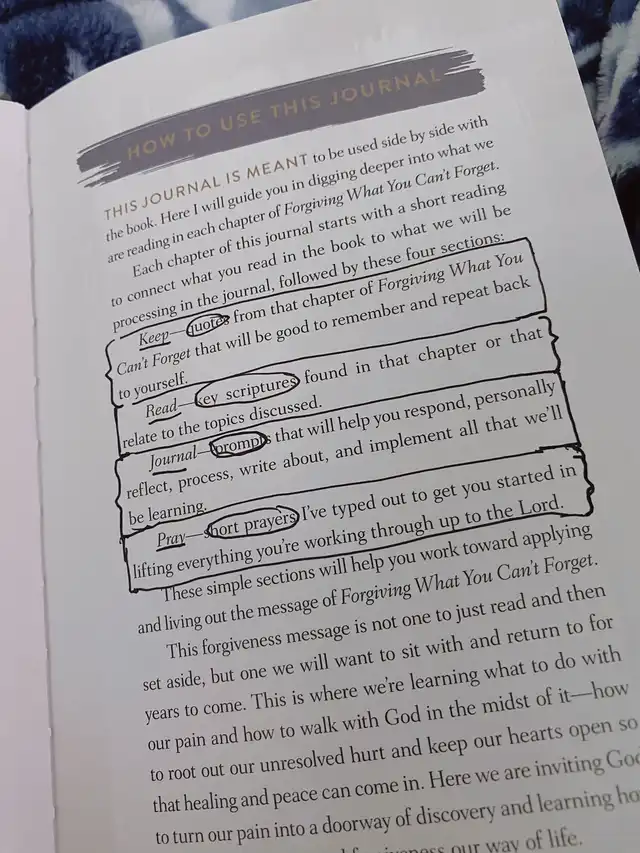 HOW TO USE THIS JOURNAL
THIS JOURNAL IS MEANT to be used side by side with
the book. Here I will guide you in digging deeper into what we
are reading in each chapter of Forgiving What You Can't Forget.
Each chapter of this journal starts with a short reading
to connect what you read in the book to what we will be
processing in the journal, followed by these four sections:
Keep—quotes from that chapter of Forgiving What You
Can't Forget that will be good to remember and repeat back
to yourself.
Read—key scriptures found in that chapter or that
relate to the topics discussed.
Journal—prompts that will help you respond, personally
reflect, process, write about, and implement all that we'll
be learning.
Pray—short prayers I've typed out to get you started in
lifting everything you're working through up to the Lord.
These simple sections will help you work toward applying
and living out the message of Forgiving What You Can't Forget.
This forgiveness message is not one to just read and then
set aside, but one we will want to sit with and return to for
years to come. This is where we're learning what to do with
our pain and how to walk with God in the midst of it—how
to root out our unresolved hurt and keep our hearts open so
that healing and peace can come in. Here we are inviting God
to turn our pain into a doorway of discovery and learning ho
our way of life.